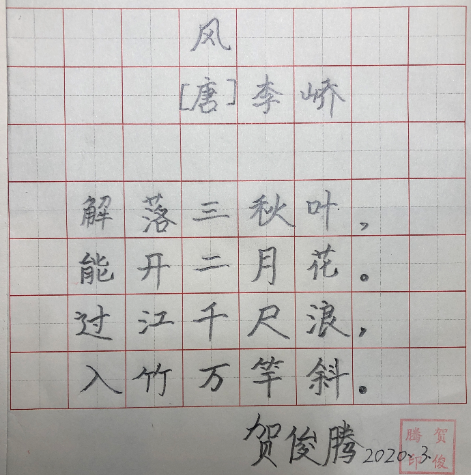 风
[唐]李峤
解落三秋叶,
能开二月花。
过江千尺浪,
入竹万竿斜。
贺俊腾2020.3.
贺俊腾印